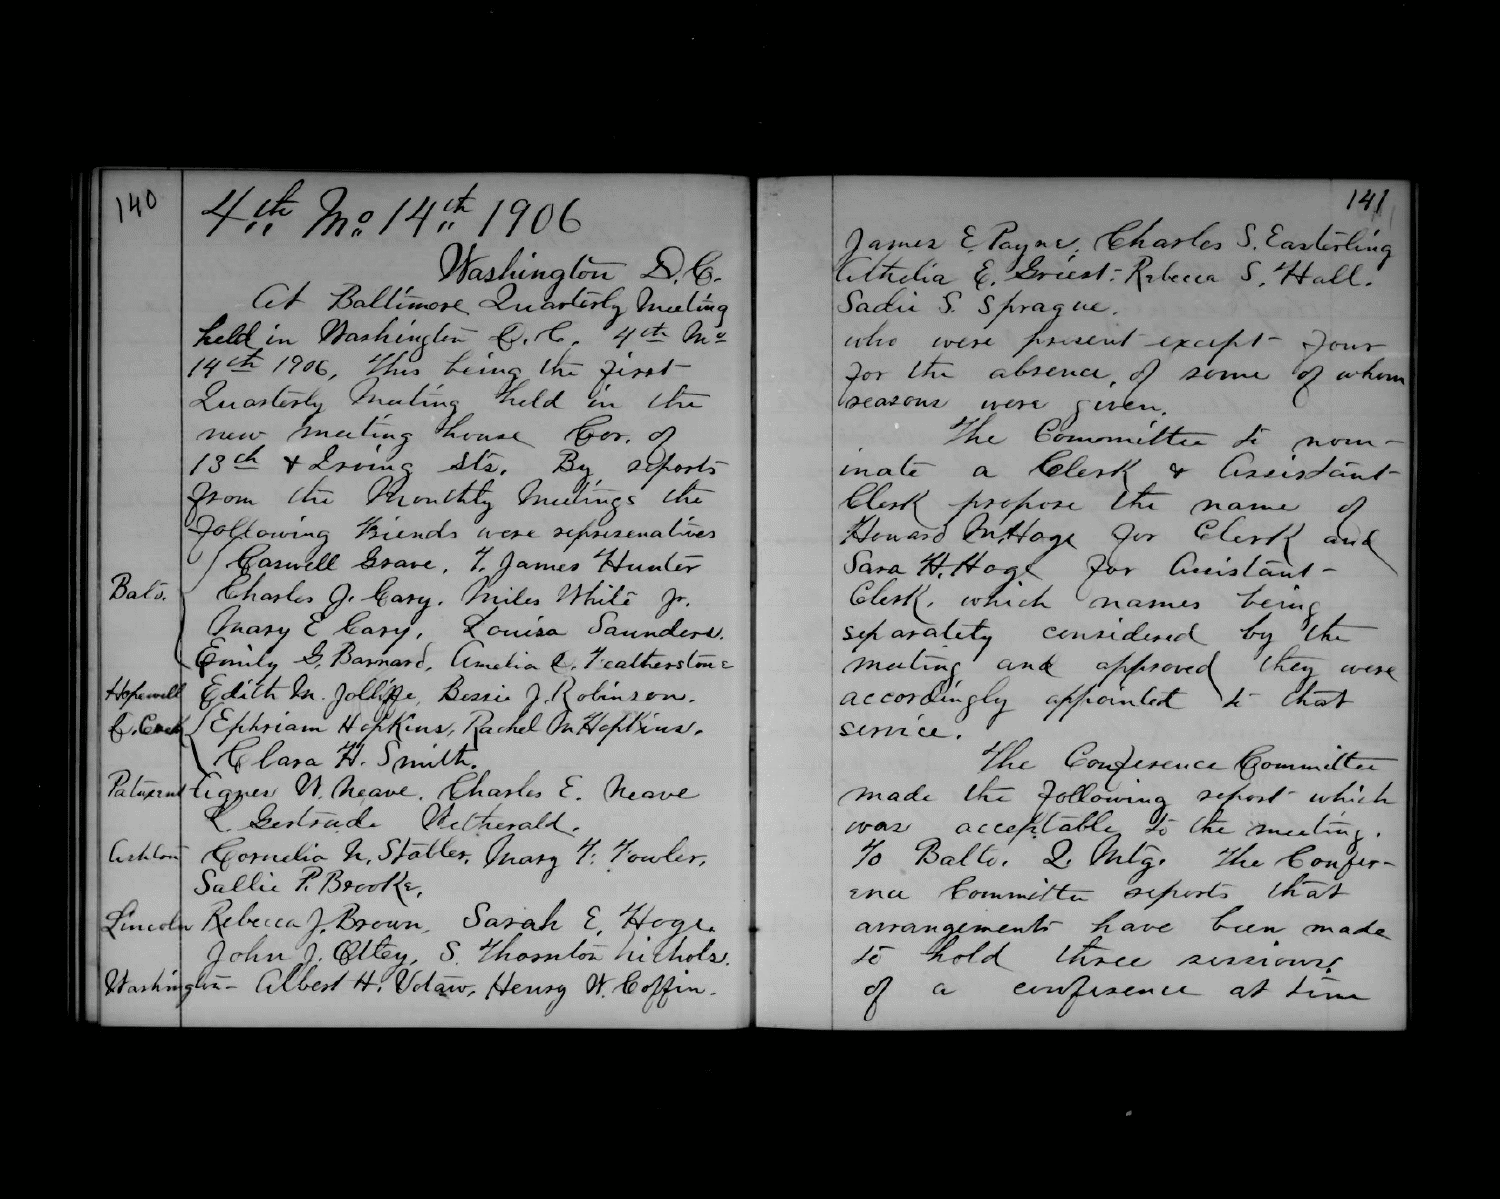 140
4th Mo 14th 1906
Washington D.C.
At Baltimore Quarterly Meeting
held in Washington D.C. 4th Mo
14th 1906, This being the first
Quarterly Meeting held in the
new meeting house Cor. of
13th & Irving Sts. By reports
from the Monthly Meetings the
following Friends were represenatives
Caswell Grave, T. James Hunter
Balto. Charles J. Cary. Miles White Jr.
Mary E Cary, Louisa Saunders.
Emily G. Barnard, Amelia C. Featherstone
Hopewell Edith M. Jolliffe, Bessie J. Robinson.
Ephriam Hopkins, Rachel M Hopkins.
Clara H. Smith.
Patuxent Agnes W. Neave. Charles E. Neave
L Gertrude Wetherald.
Ashton Cornelia N. Stabler, Mary F. Fowler,
Sallie P. Brooke,
Lincoln Rebecca J. Brown, Sarah E, Hoge.
John J. Ottey, S. Thornton Nichols.
Washington- Albert H. Votaw, Henry W. Coffin.
141
James E. Payne. Charles S. Easterling
E. Griest- Rebecca S. Hall.
Sadie S. Sprague.
who were present except four
for the absence, of some of whom
reasons were given.
The Committee to nom-
inate a Clerk & Assistant
Clerk propose the name of
Howard M. Hoge for Clerk and
Sara H. Hoge for Assistant-
Clerk. which names being
separately considered by the
meeting and approved they were
accordingly appointed to that
service.
The Conference Committee
made the following report which
was acceptable to the meeting.
To Balto. Q. Mtg. The Confer-
ence Committee reports that
arrangements have been made
to hold three sessions
of a conference at time